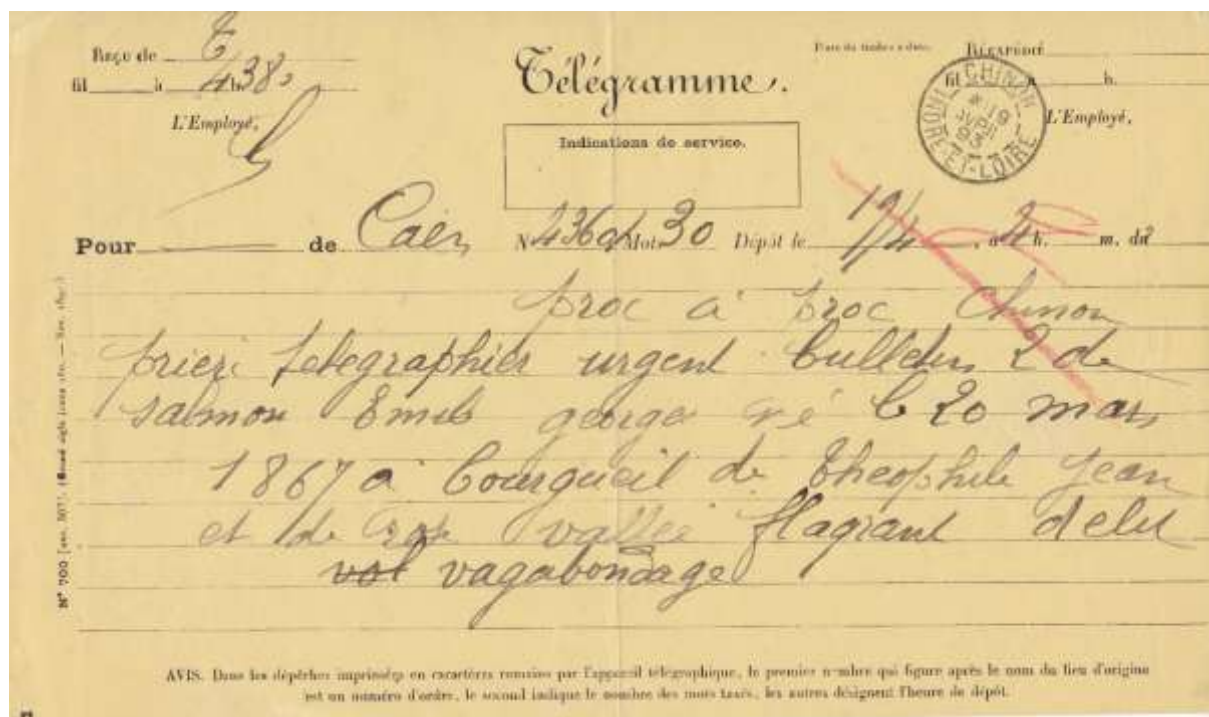 Reçu de
fil à 4h 38s
L'Employé,
Télégramme.
Indications de service.
Place du timbre à date.
Réexpédié
fil à h.
L'Employé,
CHINON
19
AVRIL
INDRE-ET-LOIRE
Pour de Caën N° Mots 30 Dépôt le 19/4, à h. m. du
proc à proc Chinon
prier telegraphier urgent bulletin 2 de
Salmon Emile george né le 20 mars
1867 a bourgueil de theophile Jean
et de rose vallée flagrant delit
vol vagabondage
N° 700
AVIS. Dans les dépêches imprimées en caractères romains par l'appareil télégraphique, le premier nombre qui figure après le nom du lieu d'origine
est un numéro d'ordre, le second indique le nombre des mots taxés, les autres désignent l'heure de dépôt.